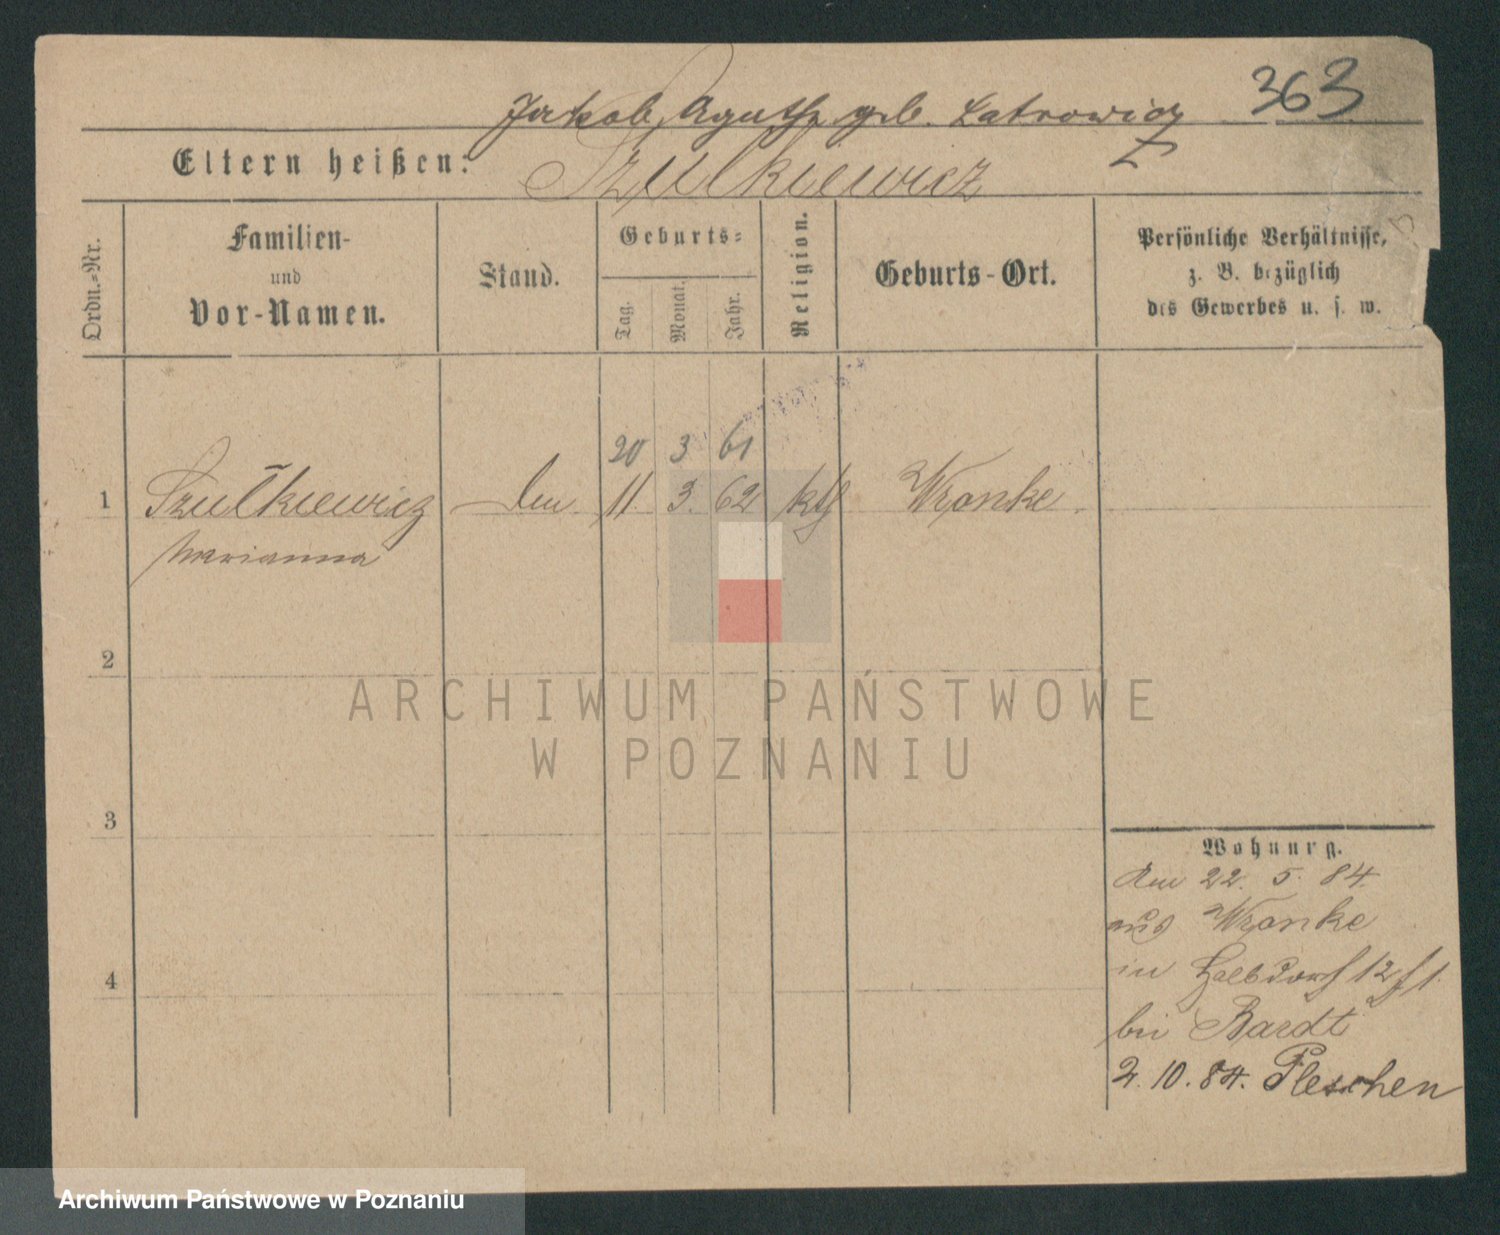 363
Jakob, Agathe geb. Latrowicz
Eltern heißen:
Szulkiewicz
Ordn.-Nr.
Familien-
und
Vor-Namen.
Stand.
Geburts-
Tag.
Monat.
Jahr.
Religion.
Geburts-Ort.
Persönliche Verhältnisse,
z. B. bezüglich
des Gewerbes u. s. w.
20 3 61
1 Szulkiewicz 11. 3. 62 kth Wronke.
Marianna
2
3
4
Wohnung.
Am 22. 5. 84.
aus Wronke
in Halbdorf 12
bei Bardt
2. 10. 84. Pleschen
ARCHIWUM PAŃSTWOWE
W POZNANIU
Archiwum Państwowe w Poznaniu